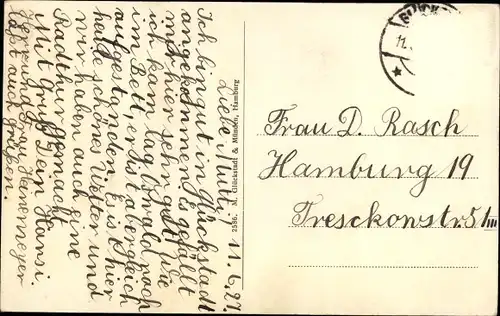 11.6.27.
Liebe Mutti,
Ich bin gut in Glückstadt
angekommen. Es gefällt
mir hier sehr gut. Wie
ich kam lag Oswald noch
im Bett, er ist aber gleich
aufgestanden. Es ist hier
heute schönes Wetter und
wir haben auch eine
Radthur gemacht
Mit Gruß Dein Hansi.
Werrung Grav Hennemeyer
läßt auch grüßen.
2556. M. Glückstadt & Münden, Hamburg
11.
Frau D. Rasch
Hamburg 19
Tresckowstr. 51 III